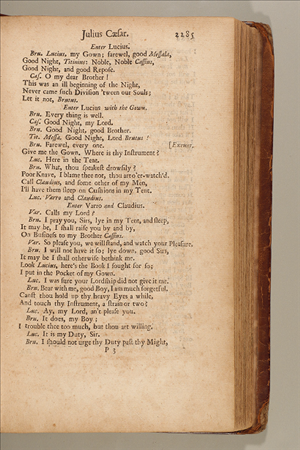 Julius Cæsar. 2285
Enter Lucius.
Bru. Lucius, my Gown; farewel, good Messala,
Good Night, Titinius: Noble, Noble Cassius,
Good Night, and good Repose.
Cas. O my dear Brother!
This was an ill beginning of the Night,
Never came such Division 'tween our Souls;
Let it not, Brutus.
Enter Lucius with the Gown.
Bru. Every thing is well.
Cas. Good Night, my Lord.
Bru. Good Night, good Brother.
Tit. Messa. Good Night, Lord Brutus!
Bru. Farewel, every one. [Exeunt.
Give me the Gown. Where is thy Instrument?
Luc. Here in the Tent.
Bru. What, thou speakest drowsily?
Poor Knave, I blame thee not, thou art o'er-watch'd.
Call Claudius, and some other of my Men,
I'll have them sleep on Cushions in my Tent.
Luc. Varro and Claudius.
Enter Varro and Claudius.
Var. Calls my Lord?
Bru. I pray you, Sirs, lye in my Tent, and sleep,
It may be, I shall raise you by and by,
On Business to my Brother Cassius.
Var. So please you, we will stand, and watch your Pleasure.
Bru. I will not have it so; lye down, good Sirs,
It may be I shall otherwise bethink me.
Look Lucius, here's the Book I sought for so;
I put in the Pocket of my Gown.
Luc. I was sure your Lordship did not give it me.
Bru. Bear with me, good Boy, I am much forgetful.
Canst thou hold up thy heavy Eyes a while,
And touch thy Instrument, a strain or two?
Luc. Ay, my Lord, an't please you.
Bru. It does, my Boy;
I trouble thee too much, but thou art willing.
Luc. It is my Duty, Sir.
Bru. I should not urge thy Duty past thy Might,
P 3